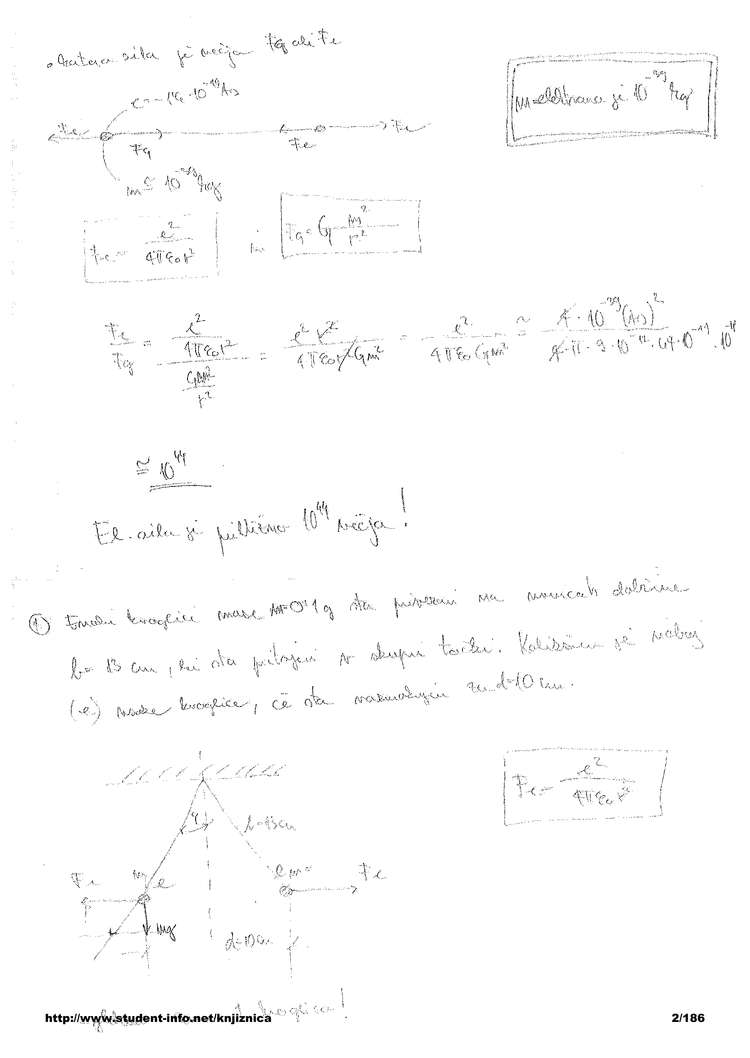 • Katera sila je večja Fg ali Fe
e = -1,6·10⁻¹⁹ As
m elektrona je 10⁻³⁹ kg
Fe Fg Fe Fe
m ≅ 10⁻³⁹ kg
Fe = e² / 4πε₀r² in Fg = G m² / r²
Fe / Fg = (e² / 4πε₀r²) / (Gm² / r²) = e² r² / 4πε₀r² Gm² = e² / 4πε₀ Gm² ≅
≅ 10⁴⁴
El. sila je približno 10⁴⁴ večja!
① Enaki kroglici mase m=0'1 g sta privezani na nitkah dolžine
l = 13 cm, ki sta pritrjeni v skupni točki. Kolikšen je naboj
(e) vsake kroglice, če sta razmaknjeni za d=10 cm.
Fe = e² / 4πε₀ r²
φ l=13cm
Fe m e e m = Fe
mg d=10cm
kroglica!
http://www.student-info.net/knjiznica 2/186